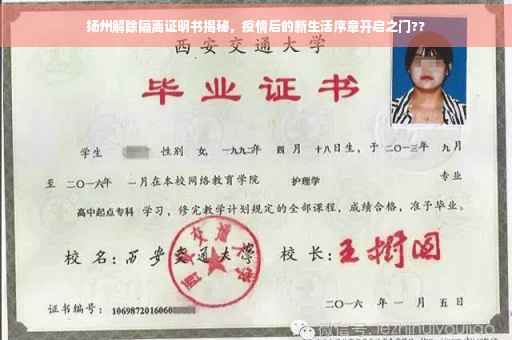 扬州解除隔离证明书揭秘，疫情后的新生活序章开启之门??
西安交通大学
毕业证书
学生 性别 女, 一九九二年 四月 十八日生，于二〇一三年 九月
至 二〇一六年 一月在本校网络教育学院 护理学 专业
高中起点专科 学习，修完教学计划规定的全部课程，成绩合格，准予毕业。
校名：西安交通大学 校长：王树国
西安交通大学
证书编号：1069872016060 二〇一六年一月五日
微信号: jiezhinuiyoujiao